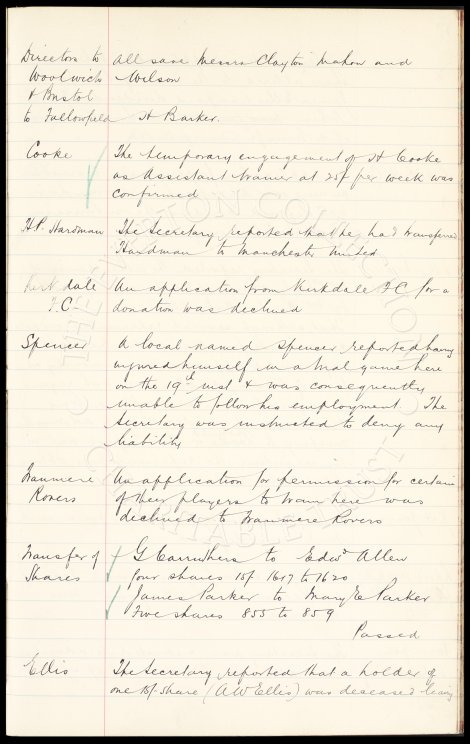 Directors to all save Messrs Clayton Mahon and
Woolwich Wilson
& Bristol
to Fallowfield H Barker.
Cooke The temporary engagement of H Cooke
as Assistant trainer at 25/- per week was
confirmed
H.P. Hardman The Secretary reported that he had transferred
Hardman to Manchester United
Kirkdale An application from Kirkdale F.C for a
F.C. donation was declined
Spencer A local named Spencer reported having
injured himself in a trial game here
on the 19th inst & was consequently
unable to follow his employment. The
Secretary was instructed to deny any
liability
Tranmere An application for permission for certain
Rovers of their players to train here was
declined to Tranmere Rovers
Transfer of G Carruthers to Edwd Allen
Shares four shares 1617 to 1620
James Parker to Mary E Parker
Five shares 855 to 859
Passed
Ellis The Secretary reported that a holder of
one share (A W Ellis) was deceased leaving
THE EVERTON COLLECTION
CHARITABLE TRUST